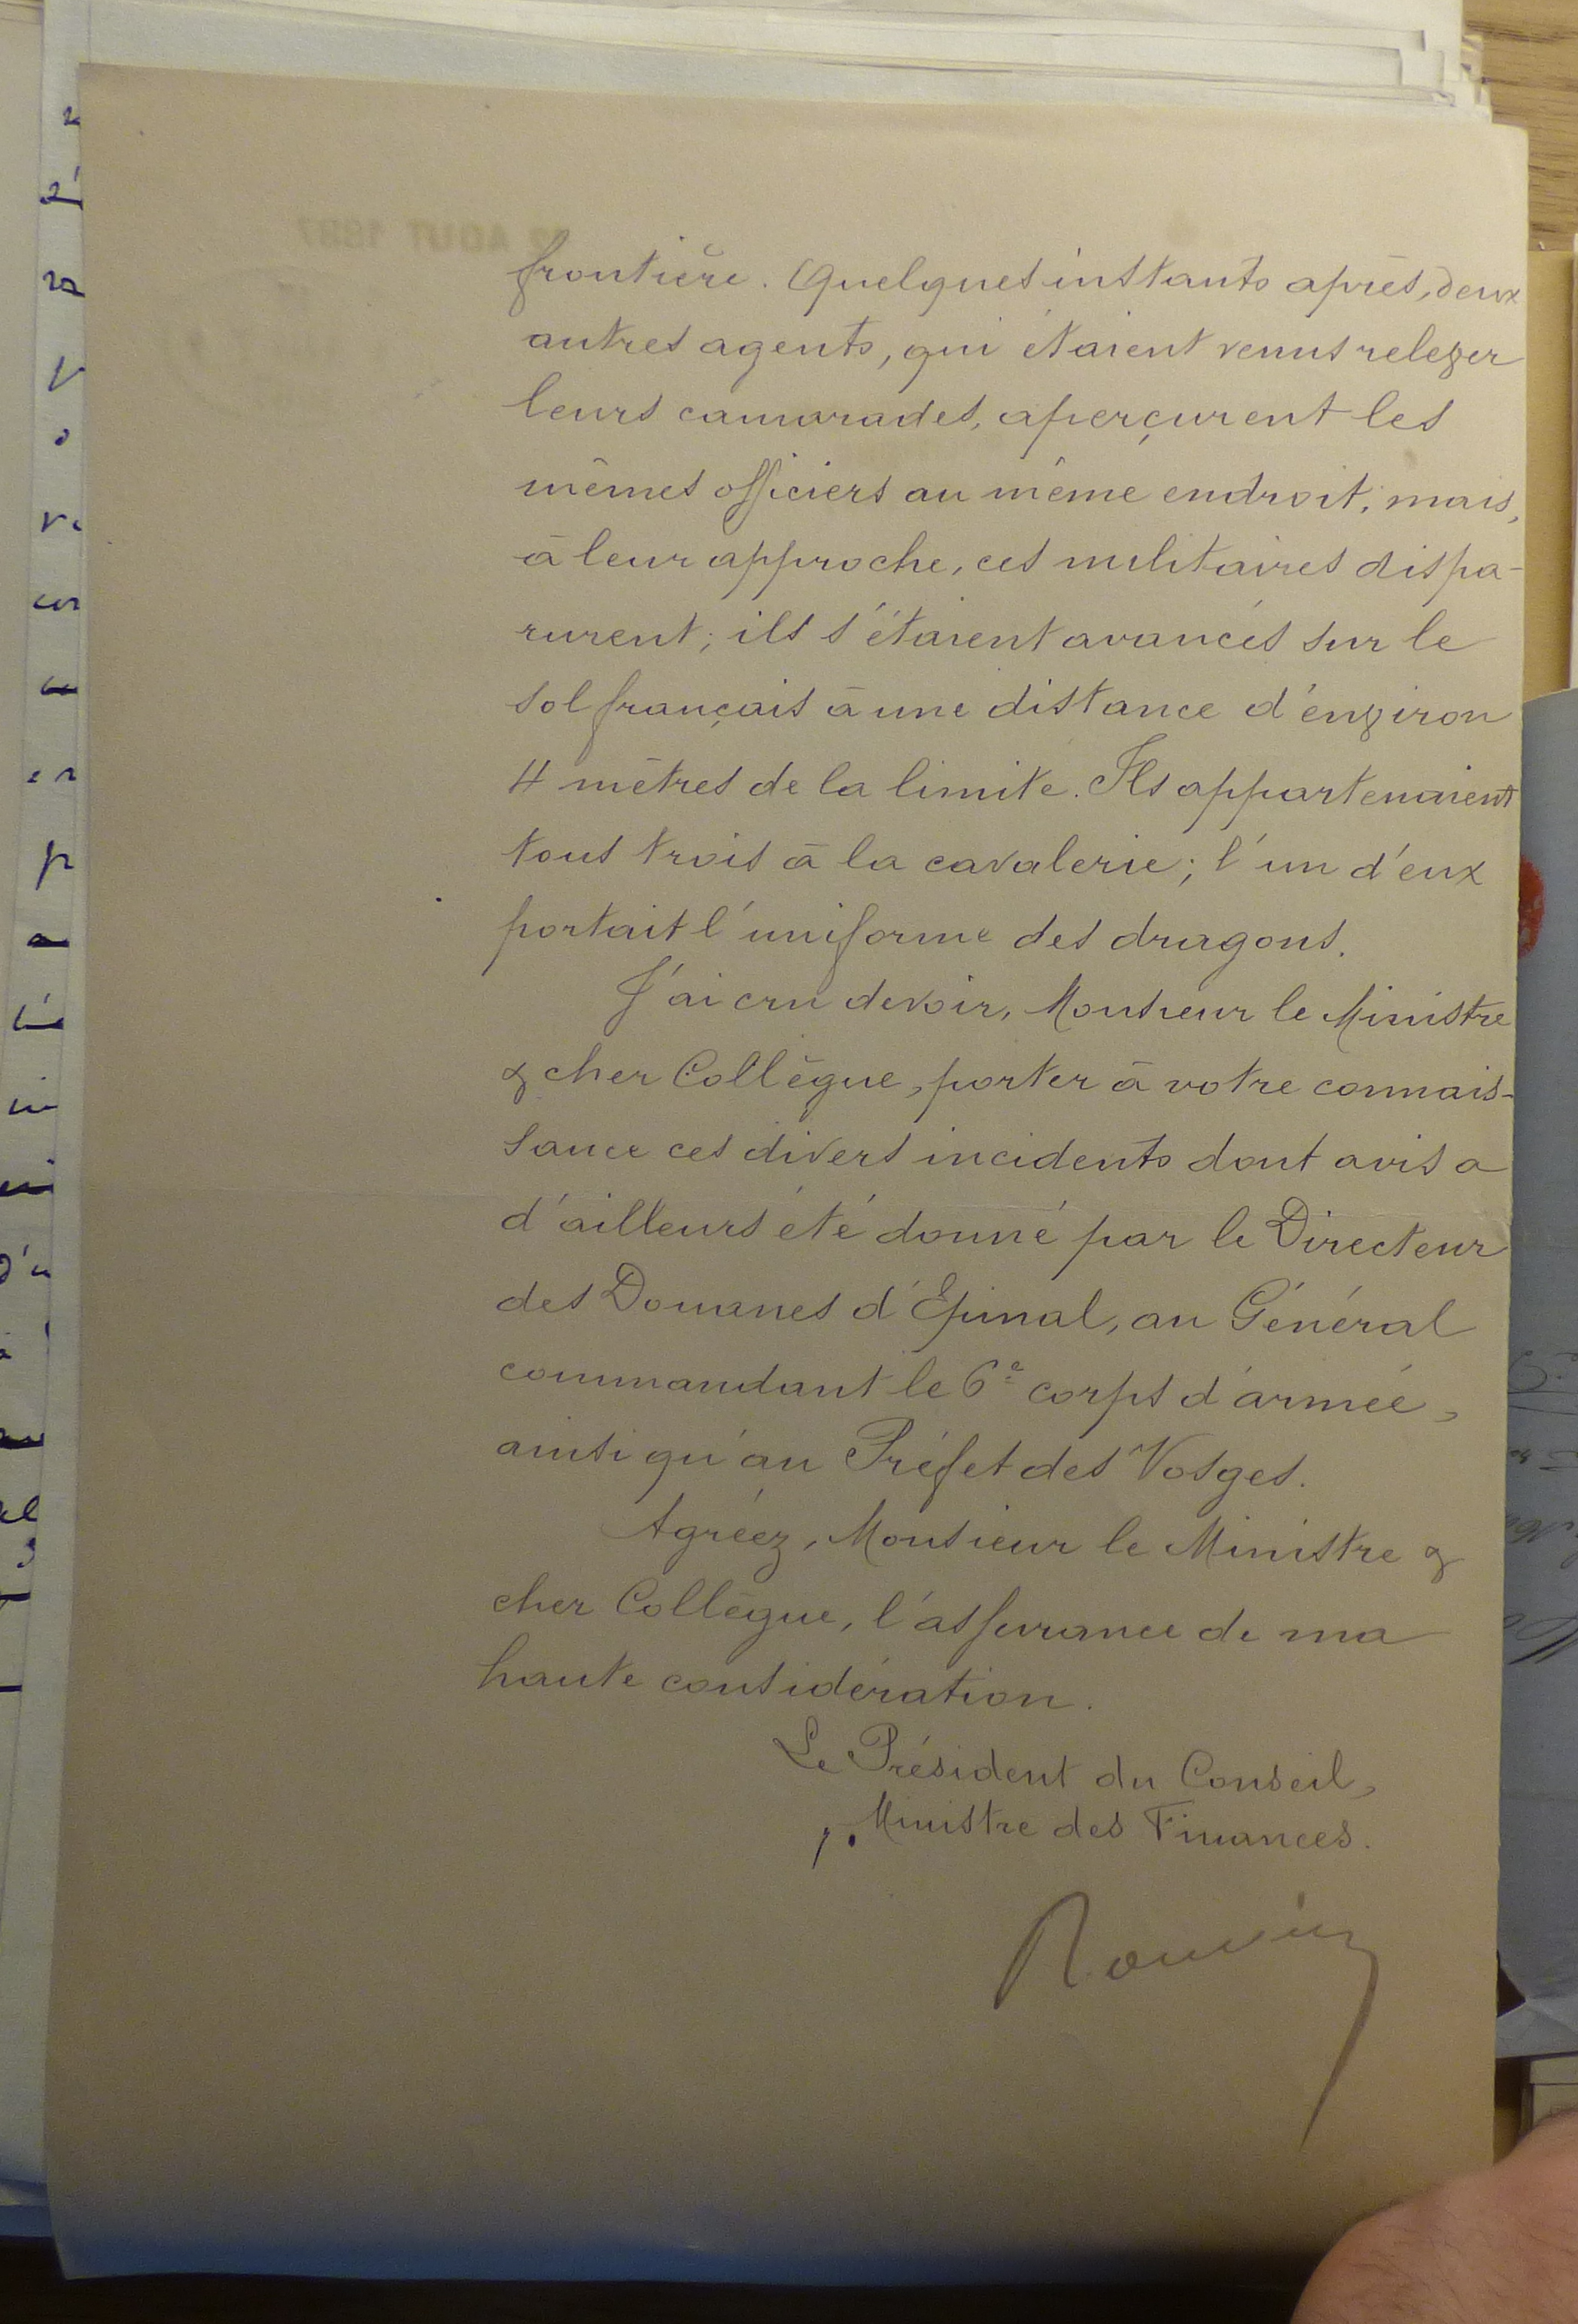 frontière. Quelques instants après, deux
autres agents, qui étaient venus relever
leurs camarades, aperçurent les
mêmes officiers au même endroit; mais,
à leur approche, ces militaires dispa-
rurent; ils s'étaient avancés sur le
sol français à une distance d'environ
4 mètres de la limite. Ils appartenaient
tous trois à la cavalerie; l'un d'eux
portait l'uniforme des dragons.
J'ai cru devoir, Monsieur le Ministre
& cher Collègue, porter à votre connais-
sance ces divers incidents dont avis a
d'ailleurs été donné par le Directeur
des Douanes d'Epinal, au Général
commandant le 6e corps d'armée,
ainsi qu'au Préfet des Vosges.
Agréez, Monsieur le Ministre &
cher Collègue, l'assurance de ma
haute considération.
Le Président du Conseil,
Ministre des Finances.
Rouvier